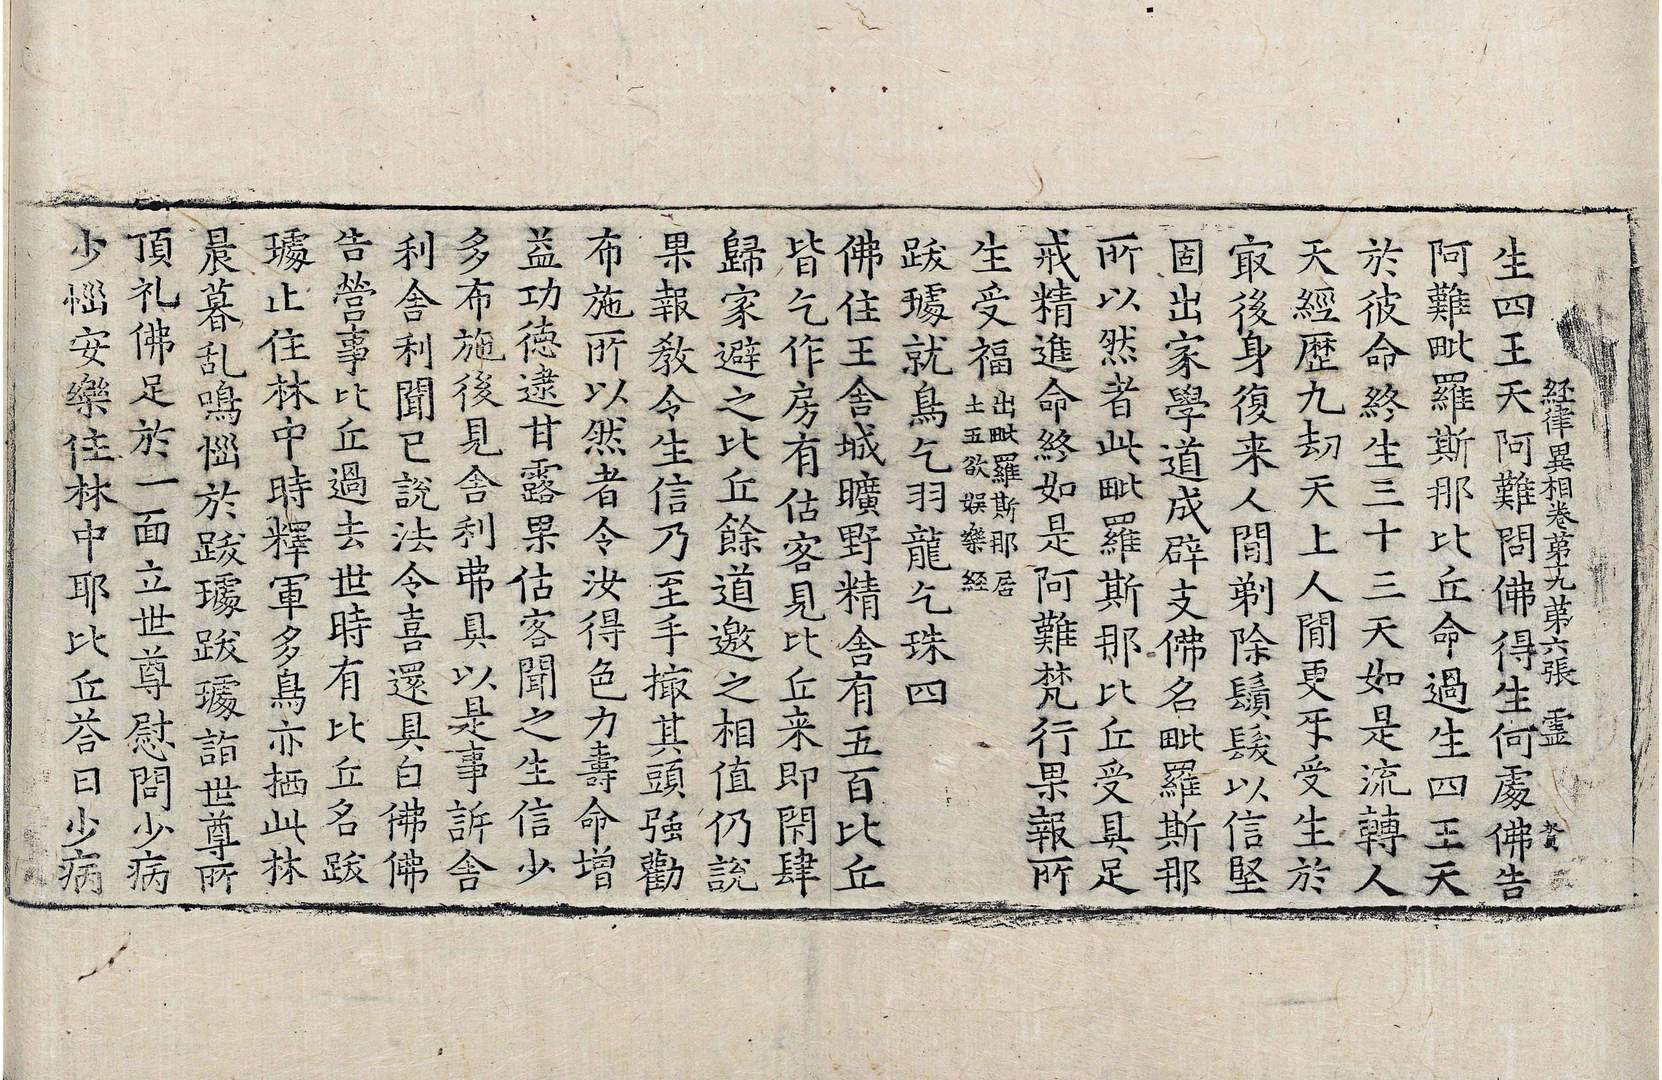 経律異相卷第十九第六張 霊
生四王天阿難問佛得生何處佛告
阿難毗羅斯那比丘命過生四王天
於彼命終生三十三天如是流轉人
天經歷九劫天上人間更互受生於
㝡後身復来人間剃除鬚髮以信堅
固出家學道成辟支佛名毗羅斯那
所以然者此毗羅斯那比丘受具足
戒精進命終如是阿難梵行果報所
生受福出毗羅斯那居
士五欲娛樂經
跋璩就鳥乞羽龍乞珠四
佛住王舍城曠野精舍有五百比丘
皆乞作房有估客見比丘来即閇肆
歸家避之比丘餘道邀之相值仍說
果報教令生信乃至手撖其頭强勸
布施所以然者令汝得色力壽命增
益功德逮甘露果估客聞之生信少
多布施後見舍利弗具以是事訴舍
利舍利聞已說法令喜還具白佛佛
告營事比丘過去世時有比丘名跋
璩止住林中時釋軍多鳥亦栖此林
晨暮乱鳴惱於跋璩跋璩詣世尊所
頂礼佛足於一面立世尊慰問少病
少惱安樂住林中耶比丘荅曰少病